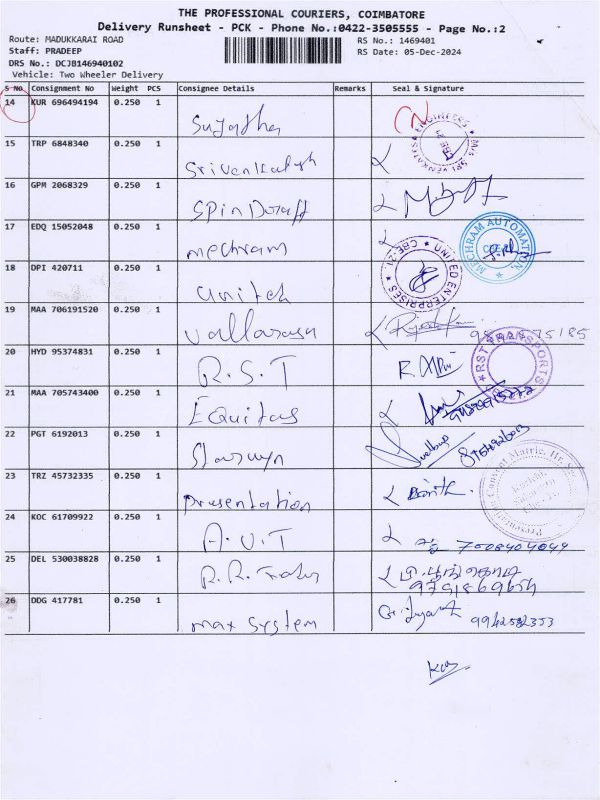 THE PROFESSIONAL COURIERS, COIMBATORE
Delivery Runsheet - PCK - Phone No.:0422-3505555 - Page No.:2
Route: MADUKKARAI ROAD
RS No.: 1469401
Staff: PRADEEP
RS Date: 05-Dec-2024
DRS No.: DCJB146940102
Vehicle: Two Wheeler Delivery
S No Consignment No Weight PCS Consignee Details Remarks Seal & Signature
14 KUR 696494194 0.250 1
Sujatha
15 TRP 6848340 0.250 1
Srivenkatesh
ENGINEERS
16 GPM 2068329 0.250 1
17 EDQ 15052048 0.250 1
mechram
MECHRAM AUTOMATION
18 DPI 420711 0.250 1
unitek
UNITED ENTERPRISES CBE-21
19 MAA 706191520 0.250 1
vallarasu
20 HYD 95374831 0.250 1
R.S.T
RST TRANSPORTS
21 MAA 705743400 0.250 1
Equitas
22 PGT 6192013 0.250 1
23 TRZ 45732335 0.250 1
presentation
24 KOC 61709922 0.250 1
A.V.T
25 DEL 530038828 0.250 1
9751869654
26 DDG 417781 0.250 1
max system
9942582353